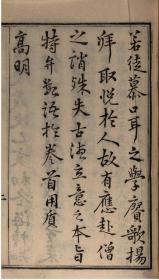 若徒慕口耳之學賡歌揚
拜取悅於人故有應赴僧
之誚殊失古德立意之本旨
特弁數語於卷首用質
高明
二